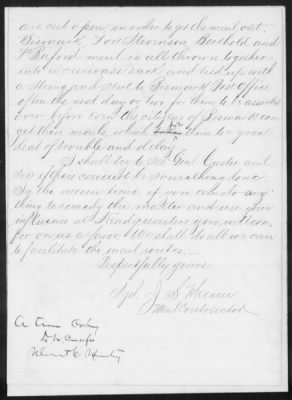 are cut open, in order to get the mail out.
Bismarck, Fort Stevenson, Berthold and
Ft Buford mail is all thrown together
into a canvass sack and tied up with
a string and sent to Bismarck Post Office
often the next day or two for them to be assorted
over, before even the citizens of Bismarck can
get their mail, which puts them to a great
deal of trouble and delay.
I shall try to see Genl Custer and
see if there cannot be something done
By the mean time if you can do any
thing to remedy the matter and use your
influence at Head quarters you will con-
fer on us a favor. We shall do all we can
to facilitate the mail routes.
Respectfully yours
Sgd. J S
Mail Contractor
A true Copy